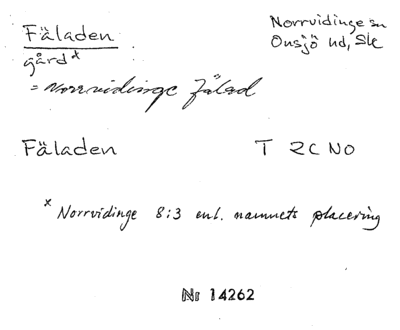 Fäladen
Norrvidinge sn
Onsjö hd, Sk
gård x
= Norrvidinge fälad
Fäladen T 2C NO
x Norrvidinge 8:3 enl. namnets placering
Nr 14262